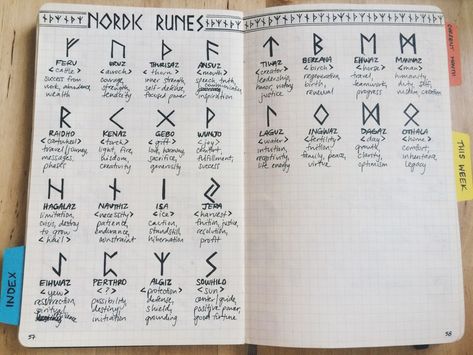 NORDIC RUNES
ᚠ
FEHU
<cattle>
success from
work, abundance,
wealth
ᚢ
URUZ
<auroch>
courage,
strength,
tenacity
ᚦ
THURIDAZ
<thorn>
inner strength,
self-defense,
focused power
ᚨ
ANSUZ
<mouth>
speech, truth,
inspiration
ᚱ
RAIDHO
<cartwheel>
travel/journey,
messages,
phases
ᚲ
KENAZ
<torch>
light, fire,
wisdom,
creativity
ᚷ
GEBO
<gift>
love, harmony,
sacrifice,
generosity
ᚹ
WUNJO
<joy>
comfort,
fulfillment,
success
ᚺ
HAGALAZ
limitation,
crisis, destroy
to grow
<hail>
ᚾ
NAUTHIZ
<necessity>
patience,
endurance,
constraint
ᛁ
ISA
<ice>
caution,
standstill,
hibernation
ᛃ
JERA
<harvest>
fruition, justice,
resolution,
profit
ᛇ
EIHWAZ
<yew>
resurrection,
spiritual
ᛈ
PERTHRO
<?>
possibility,
destiny,
initiation
ᛉ
ALGIZ
<protection>
defense,
shield,
grounding
ᛊ
SOWHILO
<sun>
center/guide,
positive power,
good fortune
57
ᛏ
TIWAZ
<creator>
leadership,
honor, victory,
justice
ᛒ
BERKANA
<birch>
regeneration,
birth,
renewal
ᛖ
EHWAZ
<horse>
travel,
teamwork,
progress
ᛗ
MANNAZ
<man>
humanity,
duty, self,
ᛚ
LAGUZ
<water>
intuition,
receptivity,
life energy
ᛜ
INGWAZ
<fertility>
fruition,
family, peace,
virtue
ᛞ
DAGAZ
<day>
growth,
clarity,
optimism
ᛟ
OTHALA
<home>
comfort,
inheritance,
legacy
58
CURRENT MONTH
THIS WEEK
INDEX